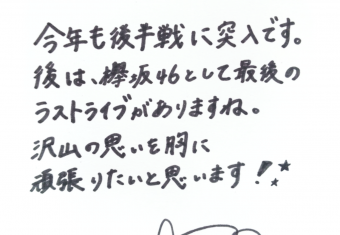 今年も後半戦に突入です。
後は、欅坂46として最後の
ラストライブがありますね。
沢山の思いを胸に
頑張りたいと思います！★★